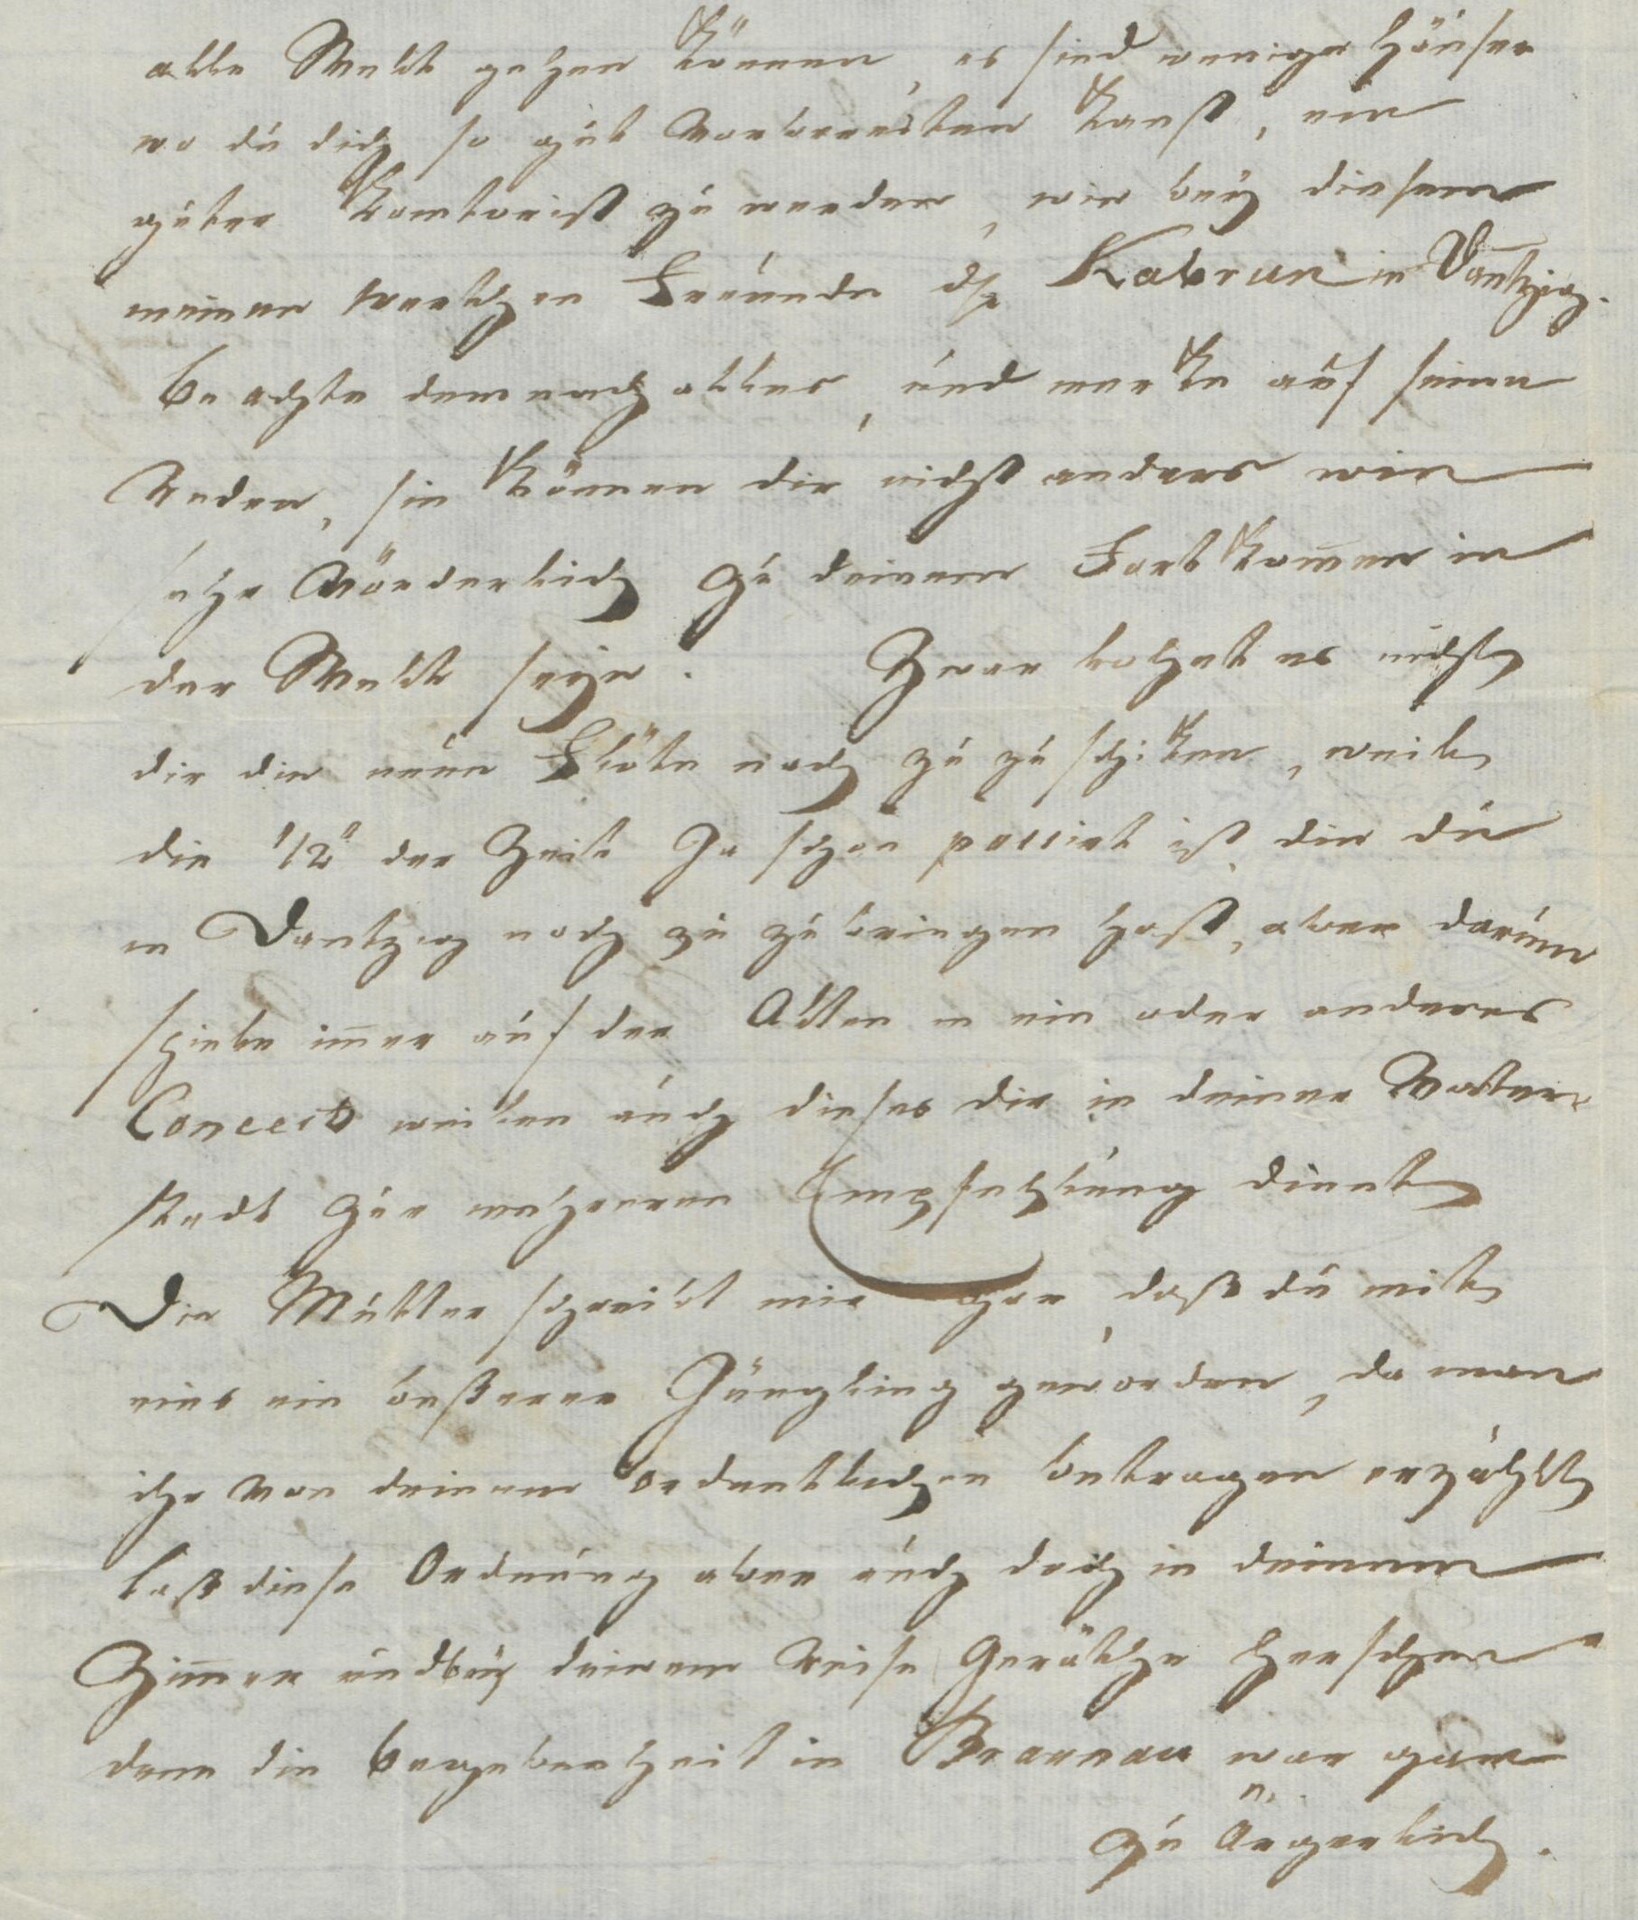 alle Weldt gehen können, es sind wenige Häuser
wo du dich so gut vorbereiten kanst, ein
guter Komtorist zu werden, wie bey diesem
meinem werthen Freunde Kabrun in Dantzig.
beachte demnach alles, und merke auf seine
Reden, sie können dir nicht anders wie
sehr vörderlich zu deinem Fortkom̅en in
der Weldt seyn. Zwar lohnet es nicht
dir die neue Flöte nach zu zu schiken, weil
die "1/2" der Zeit Ja schon passiret ist die du
in Dantzig noch zu zu bringen hast, aber darum
spiele im̅er auf der Alten in ein oder anderes
Concert weilen auch dieses dir in deiner Vatter-
stadt zur mehreren Empfehlung dienet
Die Mutter schreibt mir gar, daß du mit
eins ein beßerer Jüngling geworden, da man
ihr von deinem ordentlichen betragen erzählt
laß diese Ordnung aber auch doch in deinem
Zim̅er und bey deinem Reise Geräthe herschen
denn die begebenheit in Braunau war gar
zu Ärgerlich.